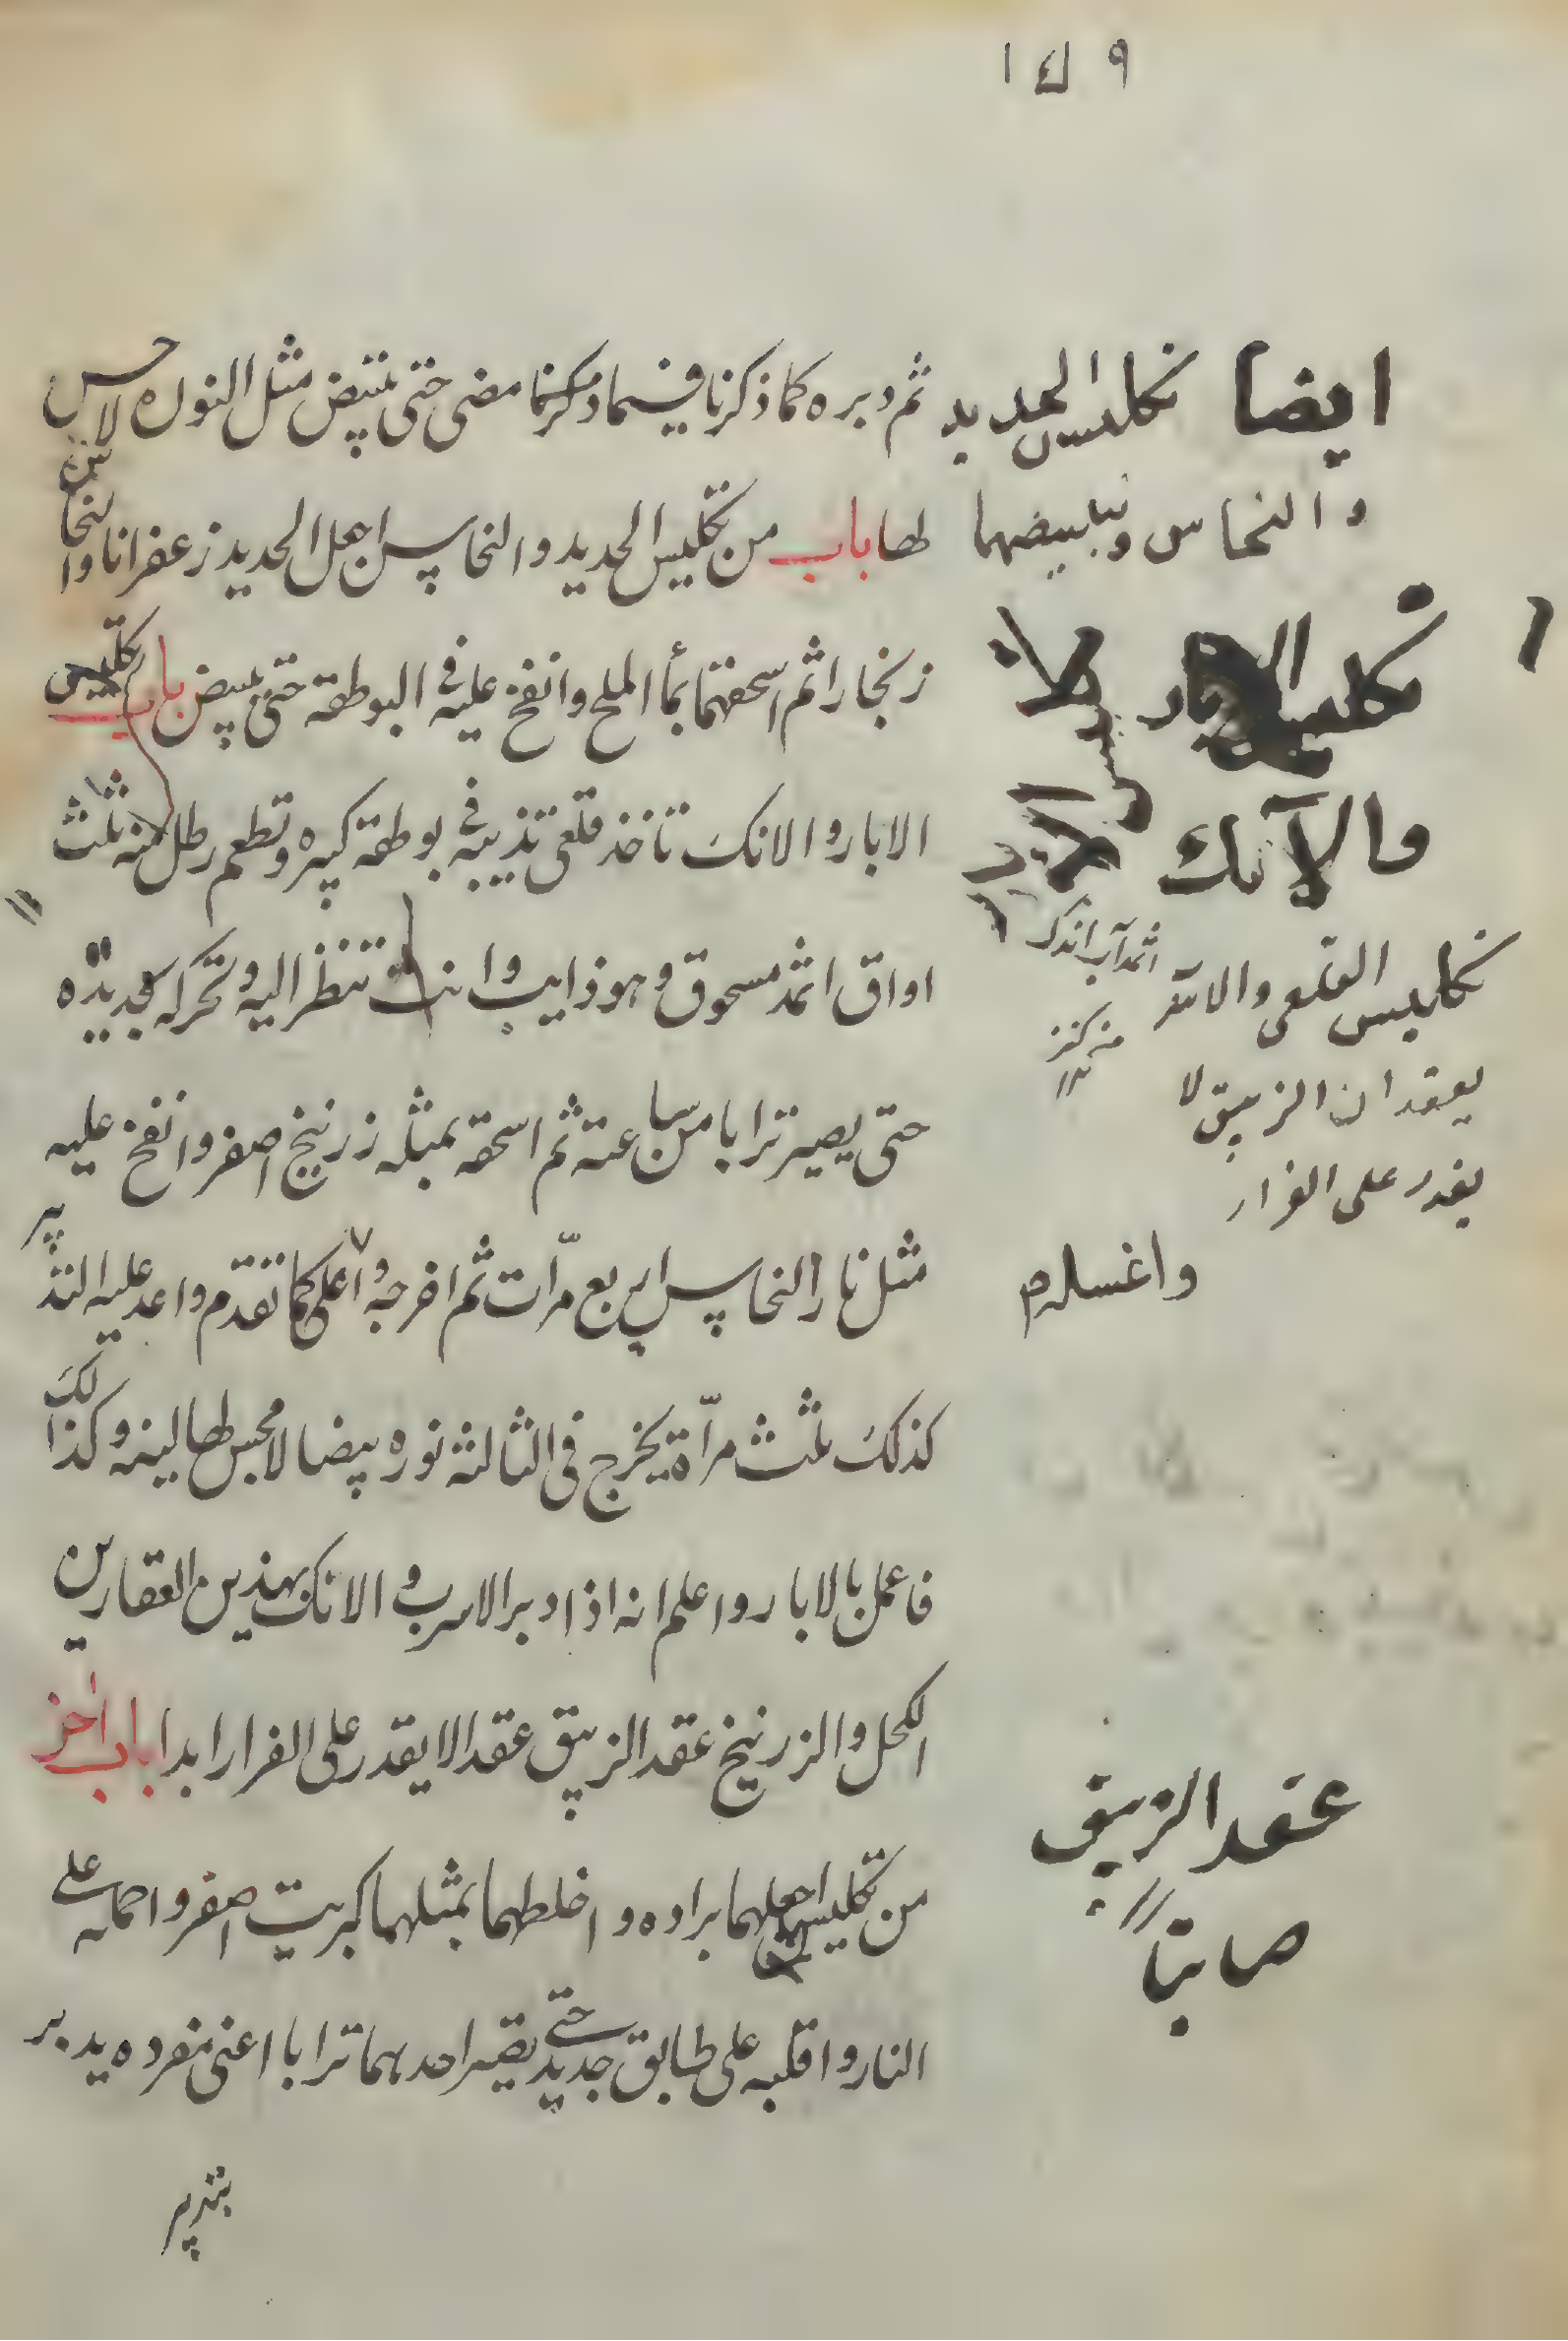 ثم دبره كما ذكرنا فيما مضى حتى يبيض مثل النوره لا حس
لها باب من تكليس الحديد والنحاس اجعل الحديد زعفرانا والنحاس
زنجارا ثم اسحقهما بمأ الملح وانفخ عليه فى البوطقة حتى يبيض باب تكليس
الابار والانك تاخذ قلعى تذيبه فى بوطقة كبيره وتطعم رطل منه ثلث
اواق اثمد مسحوق وهو ذايب وانت تنظر اليه وتحركه بحديده
حتى يصير ترابا من ساعته ثم اسحقه بمثله زرنيخ اصفر وانفخ عليه
مثل نار النحاس اربع مرّات ثم اخرجه واعلى كما تقدم واعد عليه التدبير
كذلك ثلث مرّاة يخرج فى الثالثة نوره بيضا لا مجس لها لينه وكذالك
فاعمل بالابار واعلم انه اذا دبر الاسرب والانك بهذين العقارين
الكحل والزرنيخ عقد الزيبق عقدا لا يقدر على الفرار ابدا باب اخر
من تكليسهما اجعلهما براده واخلطهما بمثلهما كبريت اصفر واحمله على
النار واقلبه على طابق حديد حتى يصير احدهما ترابا اعنى مفرده يدبر
بتدبير
١٤٩
ايضا تكليس الحديد
والنحاس وتبييضهما
تكليس
والآنك
تكليس القلعى والاسرب
يعقدان الزيبق لا
يقدر على الفرار
واغسله
عقد الزيبق
صابتا